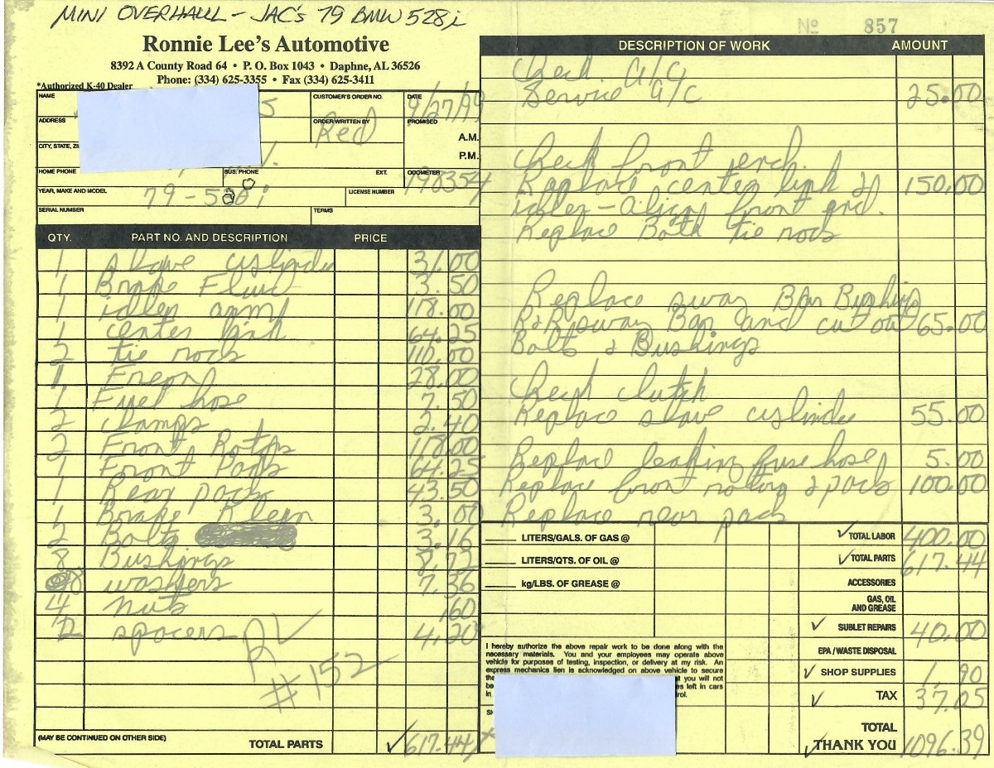 MINI OVERHAUL - JAC's 79 BMW 528i
Ronnie Lee's Automotive
8392 A County Road 64 • P. O. Box 1043 • Daphne, AL 36526
Phone: (334) 625-3355 • Fax (334) 625-3411
*Authorized K-40 Dealer
NAME
CUSTOMER'S ORDER NO.
DATE
9/27/99
ADDRESS
ORDER WRITTEN BY
Red
PROMISED
A.M.
P.M.
CITY, STATE,
HOME PHONE
BUS. PHONE
EXT.
ODOMETER
198354
YEAR, MAKE AND MODEL
79-528i
LICENSE NUMBER
SERIAL NUMBER
TERMS
QTY. PART NO. AND DESCRIPTION PRICE
1 slave cislinder 31.00
1 Brake Fluid 3.50
1 idler arm 118.00
1 center link 64.25
2 tie rods 110.00
1 Freon 28.00
1 Fuel hose 7.50
2 clamps 2.40
2 Front Rotors 118.00
1 Front Pads 64.25
1 Rear pads 43.50
1 Brake Kleen 3.00
2 Bolts 3.16
8 Bushings 8.72
8 washers 7.36
4 nuts .60
2 spacers 4.20
#152
(MAY BE CONTINUED ON OTHER SIDE)
TOTAL PARTS ✓ 617.44
No 857
DESCRIPTION OF WORK AMOUNT
Check A/C
Service A/C 25.00
Check front end.
Replace center link & 150.00
idler - Align front end.
Replace Both tie rods
Replace sway Bar Bushings
R&R sway Bar and cut out 65.00
Bolts & Bushings
Check clutch
Replace slave cislinder 55.00
Replace leaking fuse hose 5.00
Replace front rotors & pads 100.00
Replace rear pads
LITERS/GALS. OF GAS @
LITERS/QTS. OF OIL @
kg/LBS. OF GREASE @
✓ TOTAL LABOR 400.00
✓ TOTAL PARTS 617.44
ACCESSORIES
GAS, OIL AND GREASE
✓ SUBLET REPAIRS 40.00
EPA / WASTE DISPOSAL
✓ SHOP SUPPLIES 1.90
✓ TAX 37.05
TOTAL
THANK YOU 1096.39
I hereby authorize the above repair work to be done along with the
necessary materials. You and your employees may operate above
vehicle for purposes of testing, inspection, or delivery at my risk. An
express mechanics lien is acknowledged on above vehicle to secure
t you will not
es left in cars
trol.